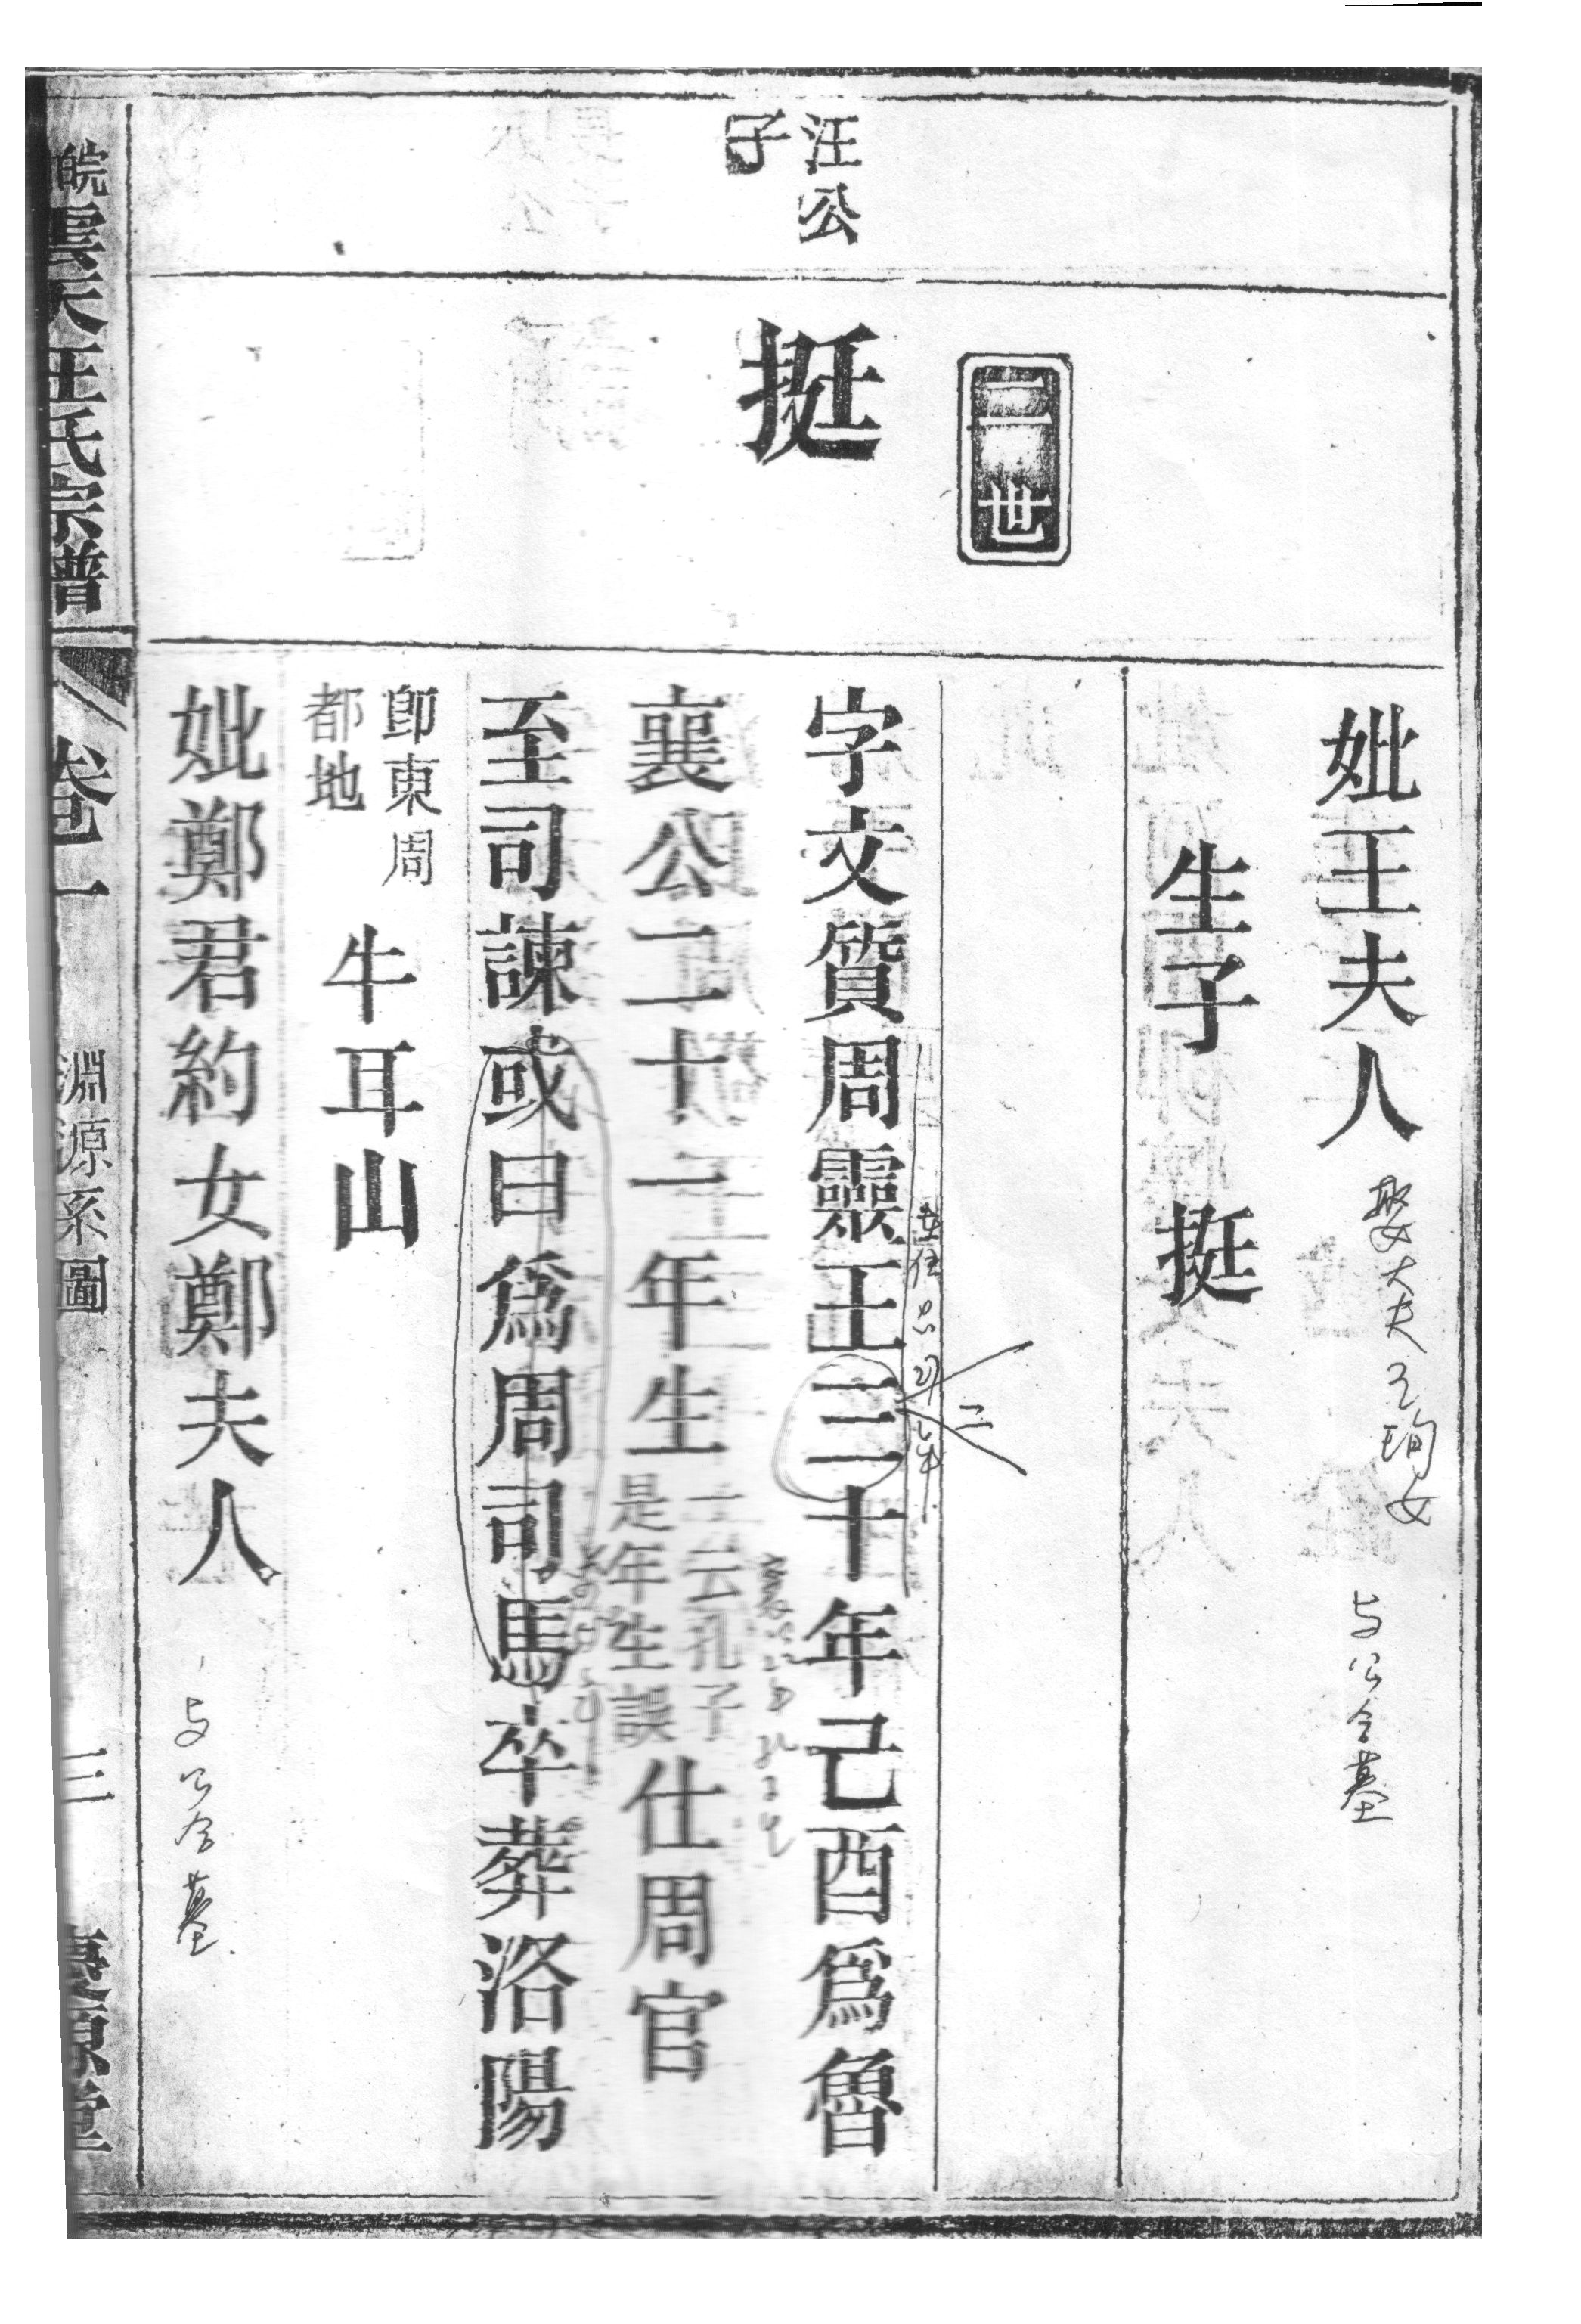 妣王夫人
与公合墓
生子 挺
二世
汪公
子
挺
字文質周靈王三十年己酉爲魯
二
襄公二十一年生
一云孔子
是年生誤
仕周官
至司諫或曰爲周司馬卒葬洛陽
卽東周
都地
牛耳山
妣鄭君約女鄭夫人
与公合墓
皖
汪氏宗譜
卷一
淵源系圖
三